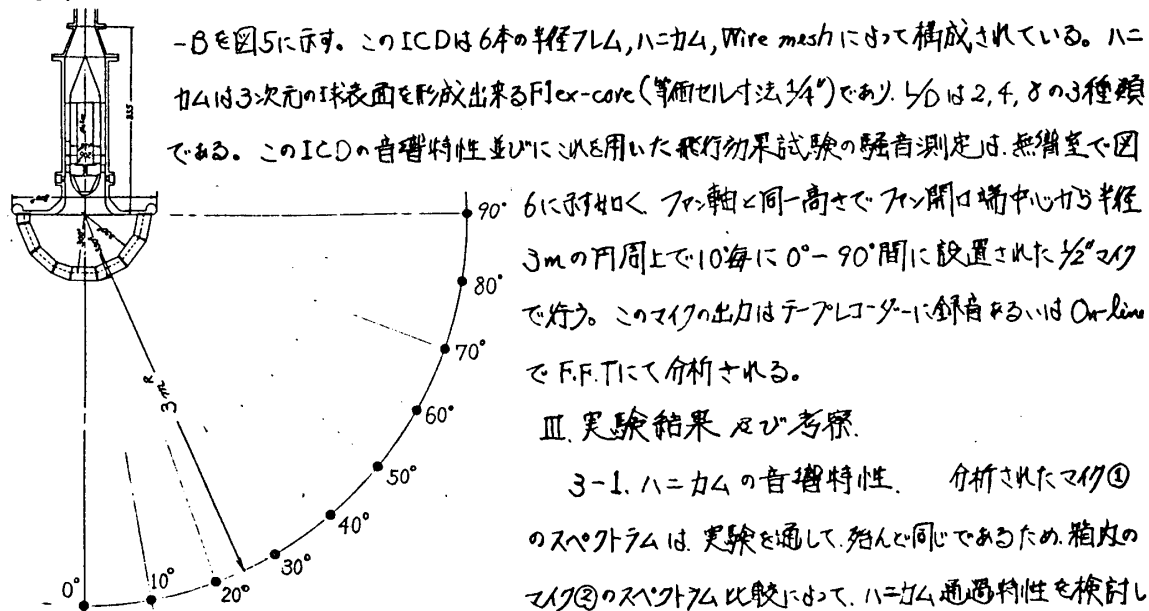 -Bを図5に示す。このICDは6本の半径フレム,ハニカム,Wire meshによって構成されている。ハニ
カムは3次元の球表面を形成出来るFlex-core(等価セル寸法1/4")であり、L/Dは2,4,8の3種類
である。このICDの音響特性並びにこれを用いた飛行効果試験の騒音測定は、無響室で図
6に示す如く、ファン軸と同一高さでファン開口端中心から半径
3mの円周上で10°毎に0°-90°間に設置された1/2"マイク
で行う。このマイクの出力はテープレコーダーに録音あるいはOn-line
でF.F.Tにて分析される。
Ⅲ.実験結果及び考察.
3-1.ハニカムの音響特性. 分析されたマイク①
のスペクトラムは、実験を通して、殆んど同じであるため、箱内の
マイク②のスペクトラム比較によって、ハニカム通過特性を検討し
90°
80°
70°
60°
50°
40°
30°
20°
10°
0°
3mR